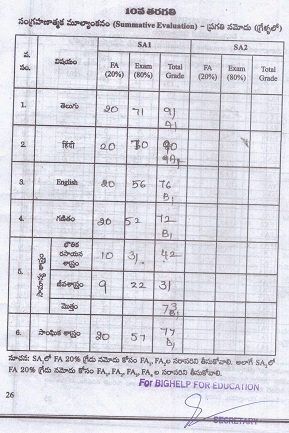 10వ తరగతి
సంగ్రహణాత్మక మూల్యాంకనం (Summative Evaluation) – ప్రగతి నమోదు (గ్రేడ్లలో)
SA1 SA2
వ. నం. విషయం FA (20%) Exam (80%) Total Grade FA (20%) Exam (80%) Total Grade
1. తెలుగు 20 71 91 A1
2. हिंदी 20 70 90
3. English 20 56 76 B1
4. గణితం 20 52 72 B1
5. సామాన్య శాస్త్రం భౌతిక రసాయన శాస్త్రం 10 31 42
జీవశాస్త్రం 9 22 31
మొత్తం 73 B1
6. సాంఘిక శాస్త్రం 20 57 77 B1
సూచన: SA1లో FA 20% గ్రేడు నమోదు కోసం FA1, FA2ల సరాసరిని తీసుకోవాలి. అలాగే SA2లో
FA 20% గ్రేడు నమోదు కోసం FA1, FA2, FA3, FA4 ల సరాసరిని తీసుకోవాలి.
26
For BIGHELP FOR EDUCATION
SECRETARY